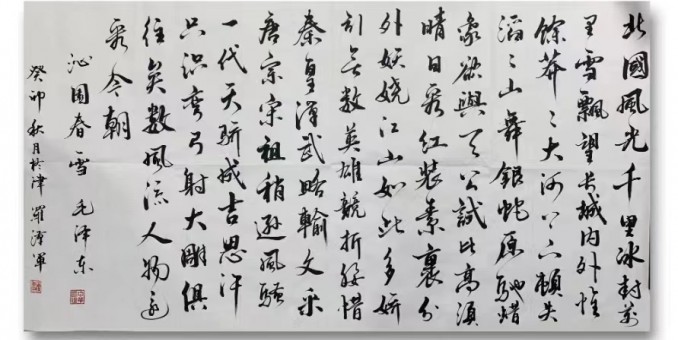 北國風光千里冰封萬
里雪飄望長城内外惟
餘莽〻大河上下頓失
滔〻山舞銀蛇原馳蜡
象欲與天公試比高須
晴日看紅裝素裹分
外妖嬈江山如此多嬌
引無數英雄競折腰惜
秦皇漢武略輸文采
唐宗宋祖稍遜風騷
一代天驕成吉思汗
只識彎弓射大雕俱
往矣數風流人物還
看今朝
沁園春雪 毛泽东
癸卯秋月於津 羅澤軍